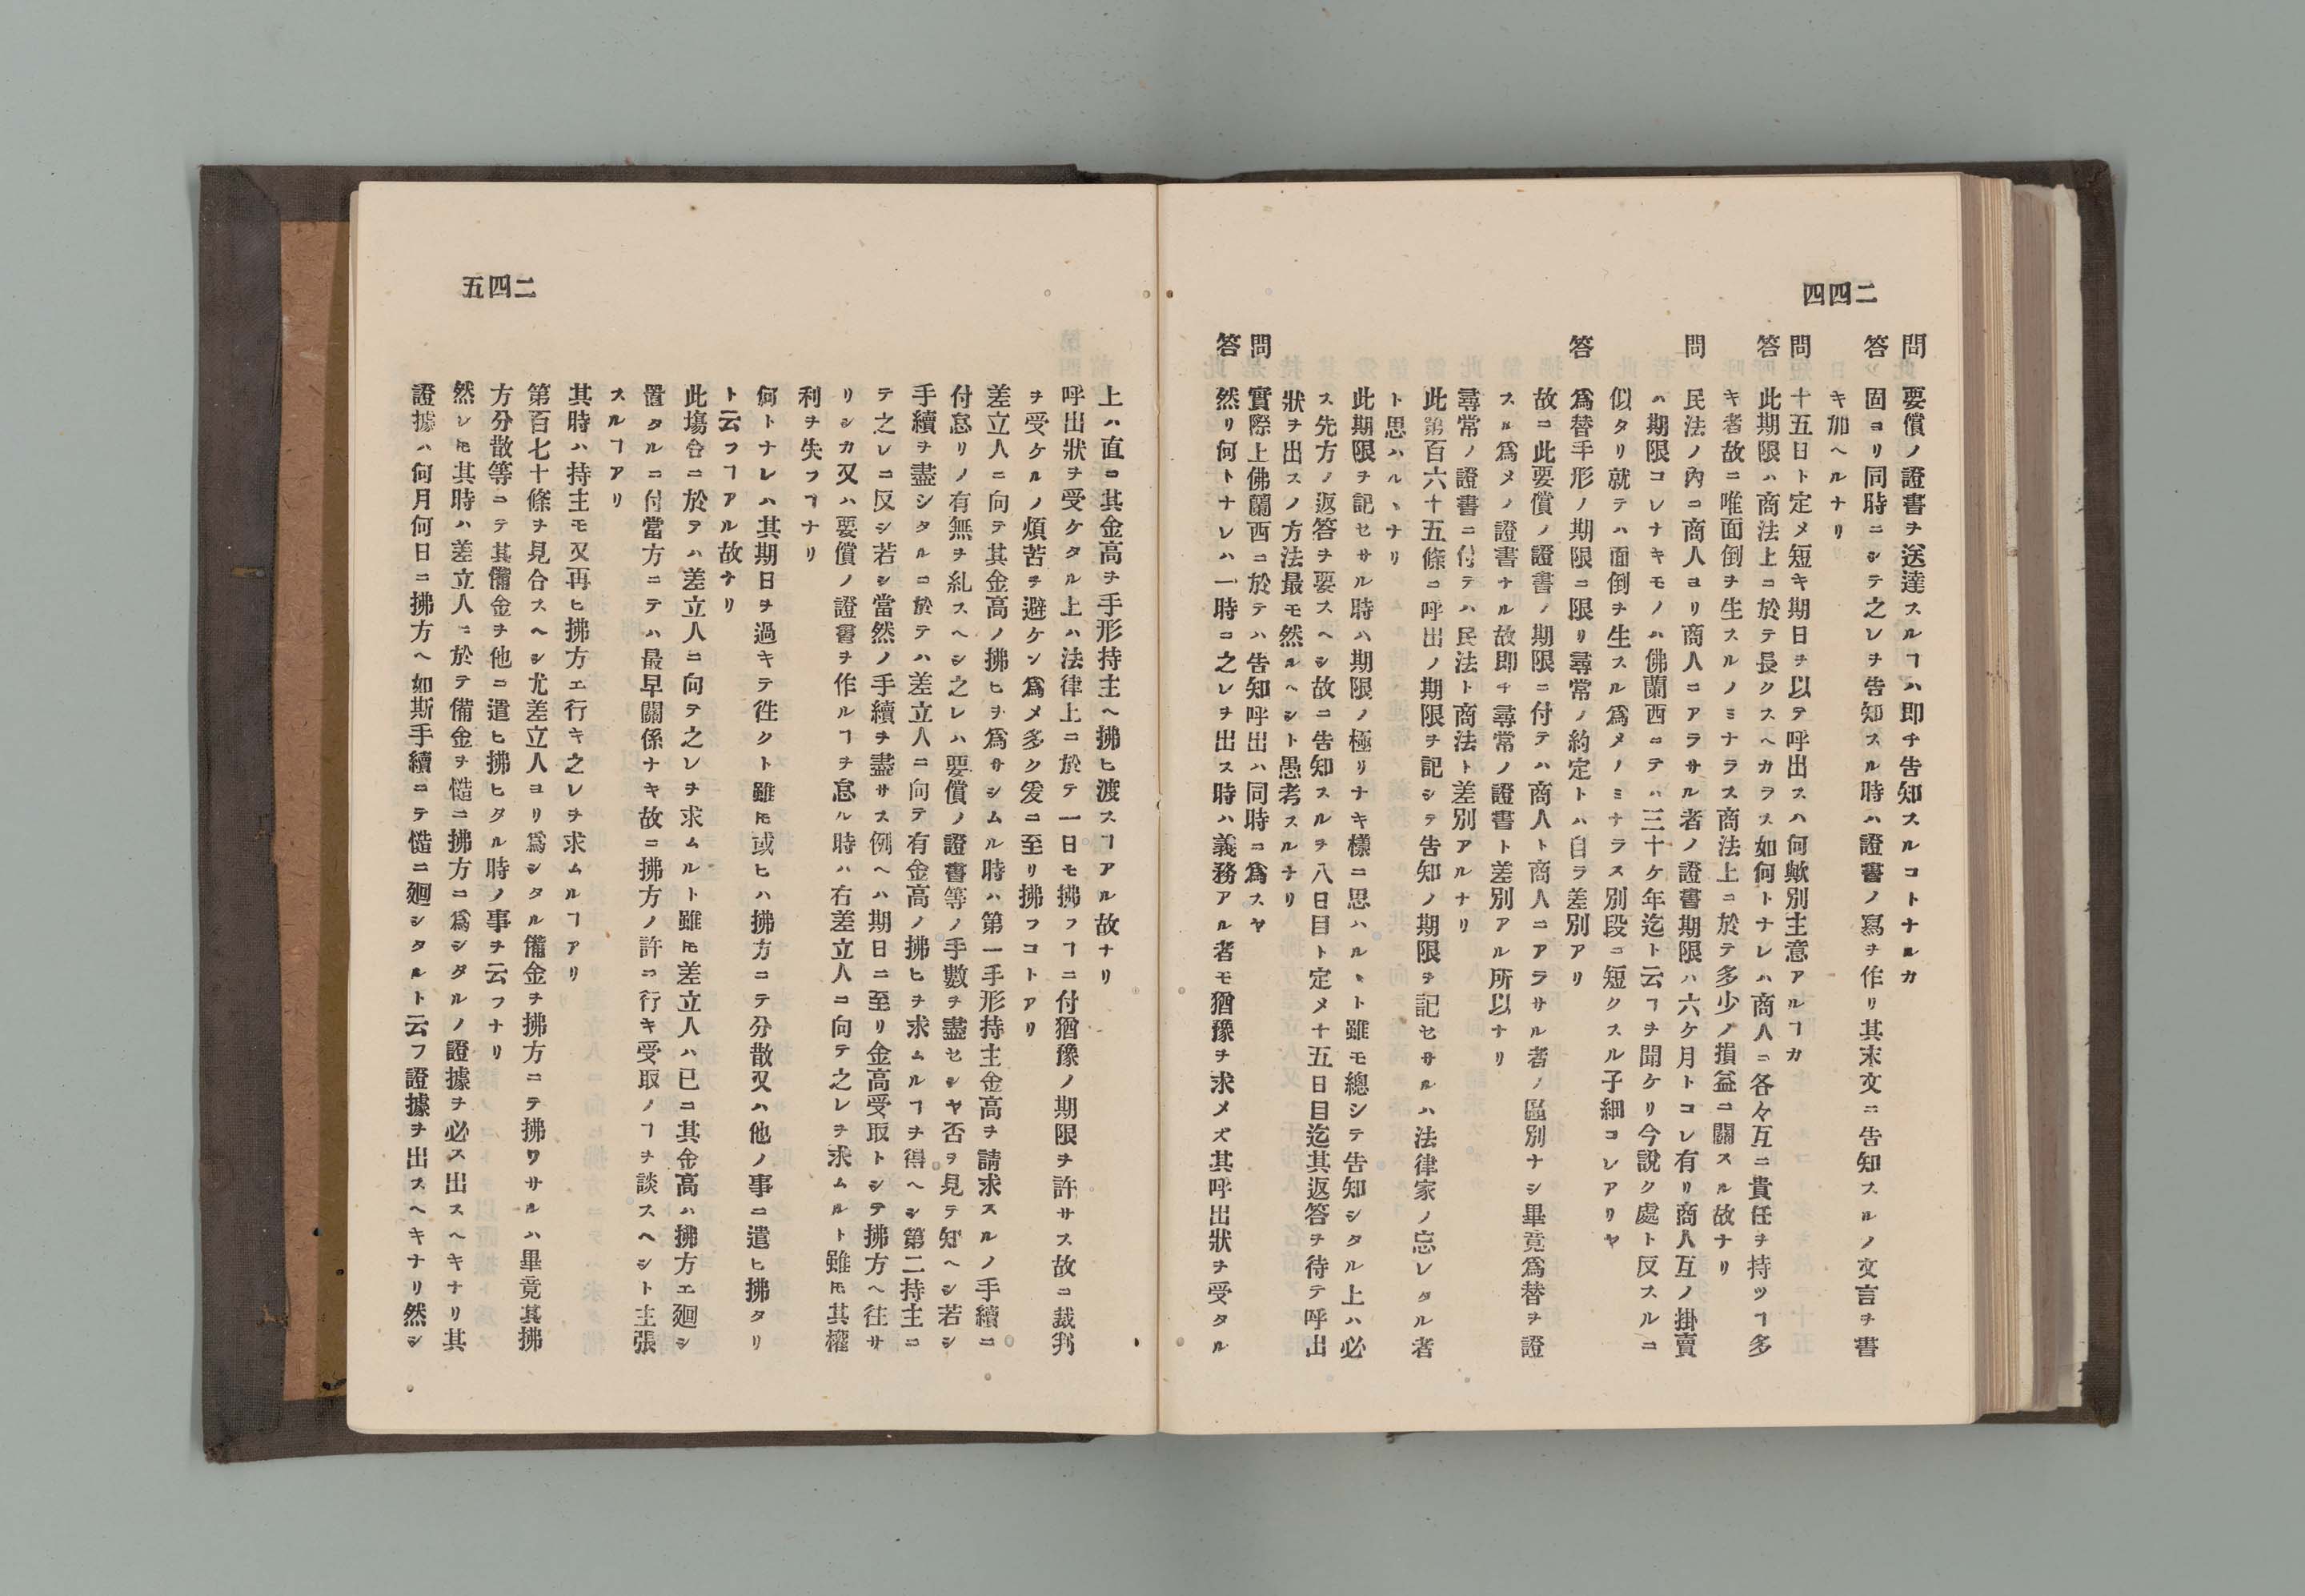 二四四
問 要償ノ證書ヲ送達スルヿハ即チ告知スルコトナルカ
答 固ヨリ同時ニシテ之レヲ告知スル時ハ證書ノ寫ヲ作リ其末文ニ告知スルノ文言ヲ書
キ加ヘルナリ
問 十五日ト定メ短キ期日ヲ以テ呼出スハ何歟別主意アルヿカ
答 此期限ハ商法上ニ於テ長クスヘカラス如何トナレハ商人ニ各々互ニ責任ヲ持ツヿ多
キ者故ニ唯面倒ヲ生スルノミナラス商法上ニ於テ多少ノ損益ニ關スル故ナリ
問 民法ノ內ニ商人ヨリ商人ニアラサル者ノ證書期限ハ六ケ月トコレ有リ商人互ノ掛賣
ハ期限コレナキモノハ佛蘭西ニテハ三十ケ年迄ト云ヿヲ聞ケリ今說ク處ト反スルニ
似タリ就テハ面倒ヲ生スル爲メノミナラス別段ニ短クスル子細コレアリヤ
答 爲替手形ノ期限ニ限リ尋常ノ約定トハ自ラ差別アリ
故ニ此要償ノ證書ノ期限ニ付テハ商人ト商人ニアラサル者ノ區別ナシ畢竟爲替ヲ證
スル爲メノ證書ナル故即チ尋常ノ證書ト差別アル所以ナリ
尋常ノ證書ニ付テハ民法ト商法ト差別アルナリ
此第百六十五條ニ呼出ノ期限ヲ記シテ告知ノ期限ヲ記セサルハ法律家ノ忘レタル者
ト思ハルヽナリ
此期限ヲ記セサル時ハ期限ノ極リナキ樣ニ思ハルヽト雖モ總シテ告知シタル上ハ必
ス先方ノ返答ヲ要スヘシ故ニ告知スルヲ八日目ト定メ十五日目迄其返答ヲ待テ呼出
狀ヲ出スノ方法最モ然ルヘシト愚考スルナリ
問 實際上佛蘭西ニ於テハ告知呼出ハ同時ニ爲スヤ
答 然リ何トナレハ一時ニ之レヲ出ス時ハ義務アル者モ猶豫ヲ求メズ其呼出狀ヲ受タル
二四五
上ハ直ニ其金高ヲ手形持主ヘ拂ヒ渡スヿアル故ナリ
呼出狀ヲ受ケタル上ハ法律上ニ於テ一日モ拂フヿニ付猶豫ノ期限ヲ許サス故ニ裁判
ヲ受ケルノ煩苦ヲ避ケン爲メ多ク爰ニ至リ拂フコトアリ
差立人ニ向テ其金高ノ拂ヒヲ爲サシムル時ハ第一手形持主金高ヲ請求スルノ手續ニ
付怠リノ有無ヲ糺スヘシ之レハ要償ノ證書等ノ手數ヲ盡セシヤ否ヲ見テ知ヘシ若シ
手續ヲ盡シタルニ於テハ差立人ニ向テ有金高ノ拂ヒヲ求ムルヿヲ得ヘシ第二持主ニ
テ之レニ反シ若シ當然ノ手續ヲ盡サス例ヘハ期日ニ至リ金高受取トシテ拂方ヘ往サ
リシカ又ハ要償ノ證書ヲ作ルヿヲ怠ル時ハ右差立人ニ向テ之レヲ求ムルト雖𪜈其權
利ヲ失フヿナリ
何トナレハ其期日ヲ過キテ徃クト雖𪜈或ヒハ拂方ニテ分散又ハ他ノ事ニ遣ヒ拂タリ
ト云フヿアル故ナリ
此塲合ニ於テハ差立人ニ向テ之レヲ求ムルト雖𪜈差立人ハ已ニ其金高ハ拂方エ廻シ
置タルニ付當方ニテハ最早關係ナキ故ニ拂方ノ許ニ行キ受取ノヿヲ談スヘシト主張
スルヿアリ
其時ハ持主モ又再ヒ拂方エ行キ之レヲ求ムルヿアリ
第百七十條ヲ見合スヘシ尤差立人ヨリ爲シタル備金ヲ拂方ニテ拂ワサルハ畢竟其拂
方分散等ニテ其備金ヲ他ニ遣ヒ拂ヒタル時ノ事ヲ云フナリ
然レ𪜈其時ハ差立人ニ於テ備金ヲ慥ニ拂方ニ爲シタルノ證據ヲ必ス出スヘキナリ其
證據ハ何月何日ニ拂方ヘ如斯手續ニテ慥ニ廻シタルト云フ證據ヲ出スヘキナリ然シ